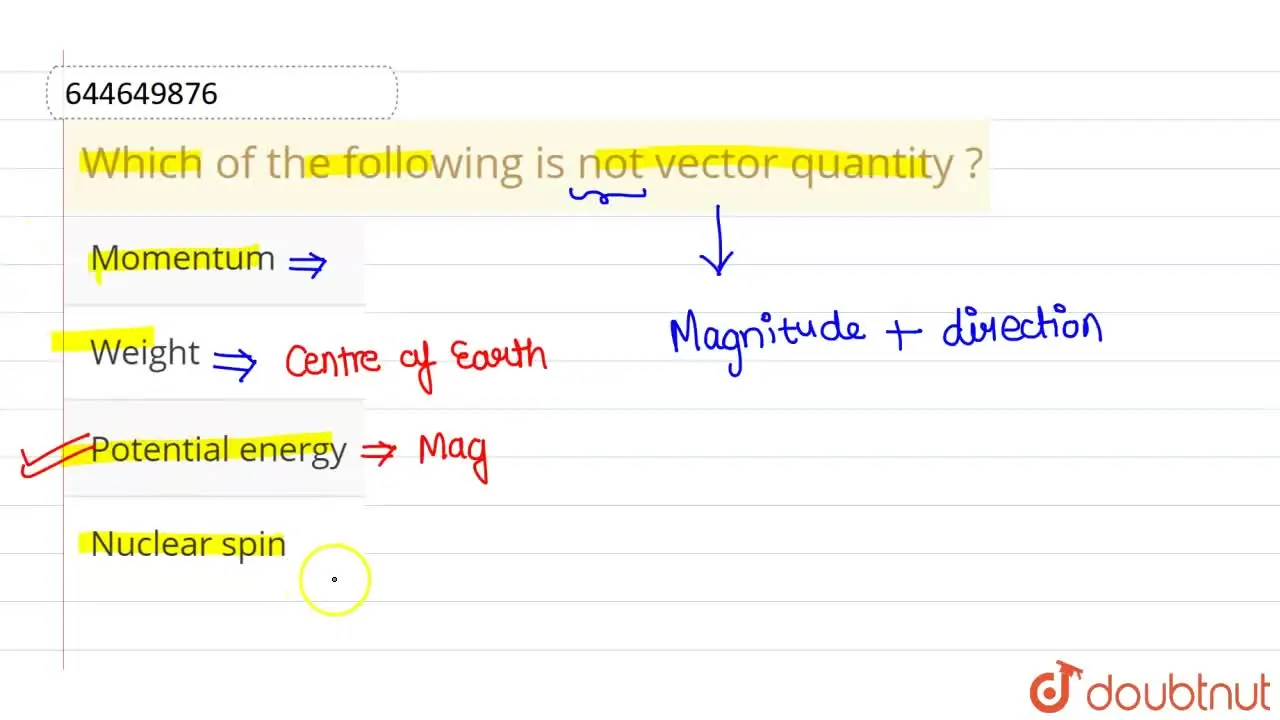 644649876
Which of the following is not vector quantity ?
Momentum ⇒
Magnitude + direction
Weight ⇒ Centre of Earth
Potential energy ⇒ Mag
Nuclear spin
doubtnut